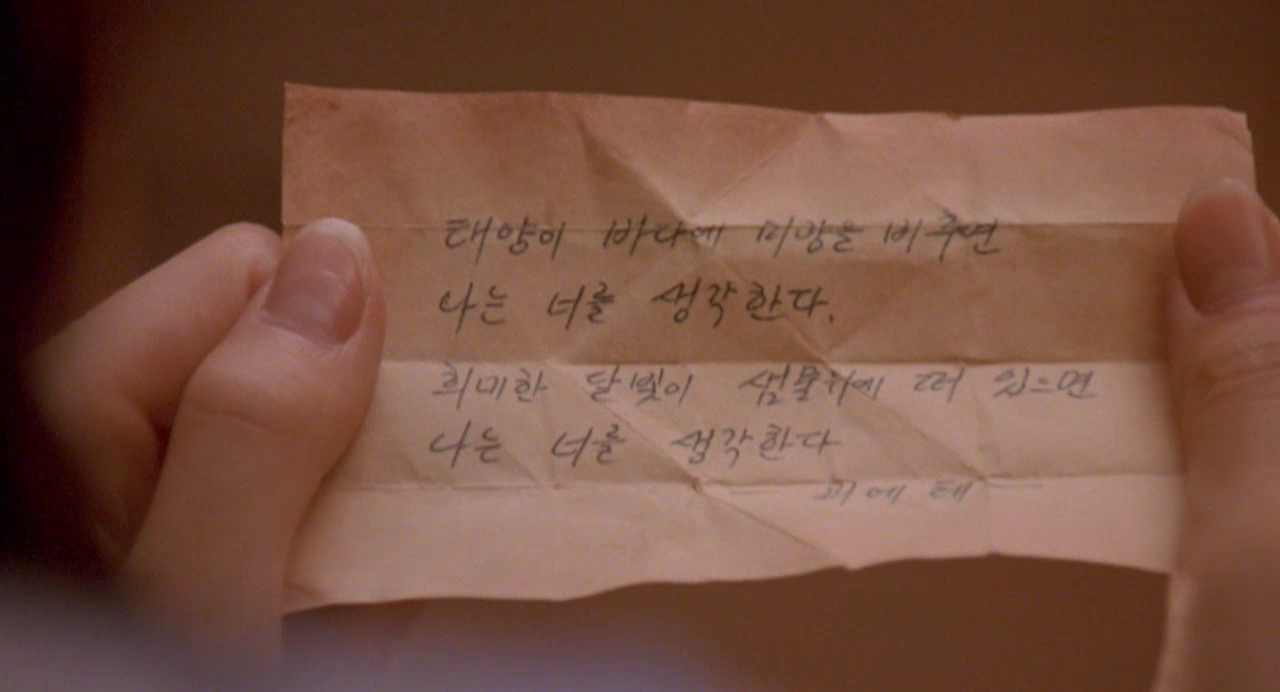 태양이 바다에 미광을 비추면
나는 너를 생각한다.
희미한 달빛이 샘물위에 떠 있으면
나는 너를 생각한다
— 괴에테 —